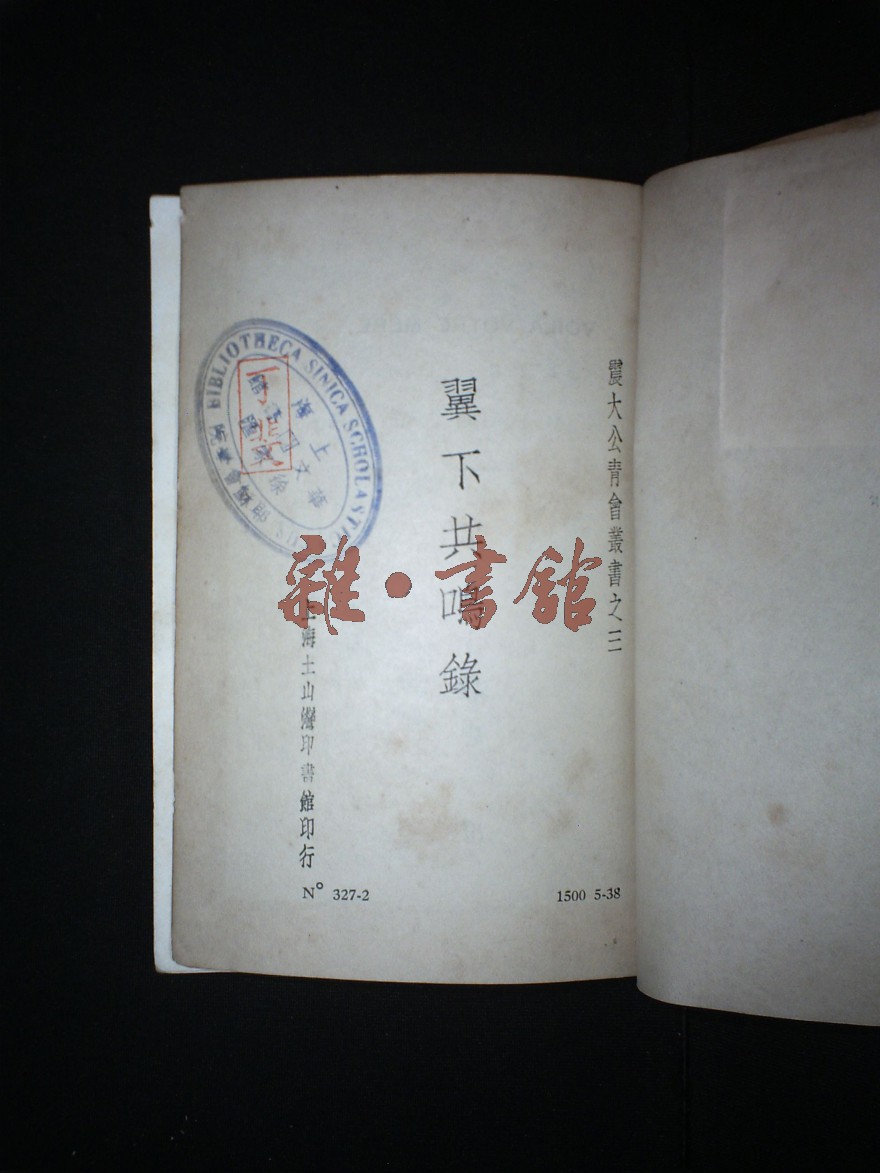 震大公青會叢書之三
翼下共鳴錄
上海土山灣印書館印行
N° 327-2
1500 5-38
BIBLIOTHECA SINICA SCHOLASTIC
雜·書館